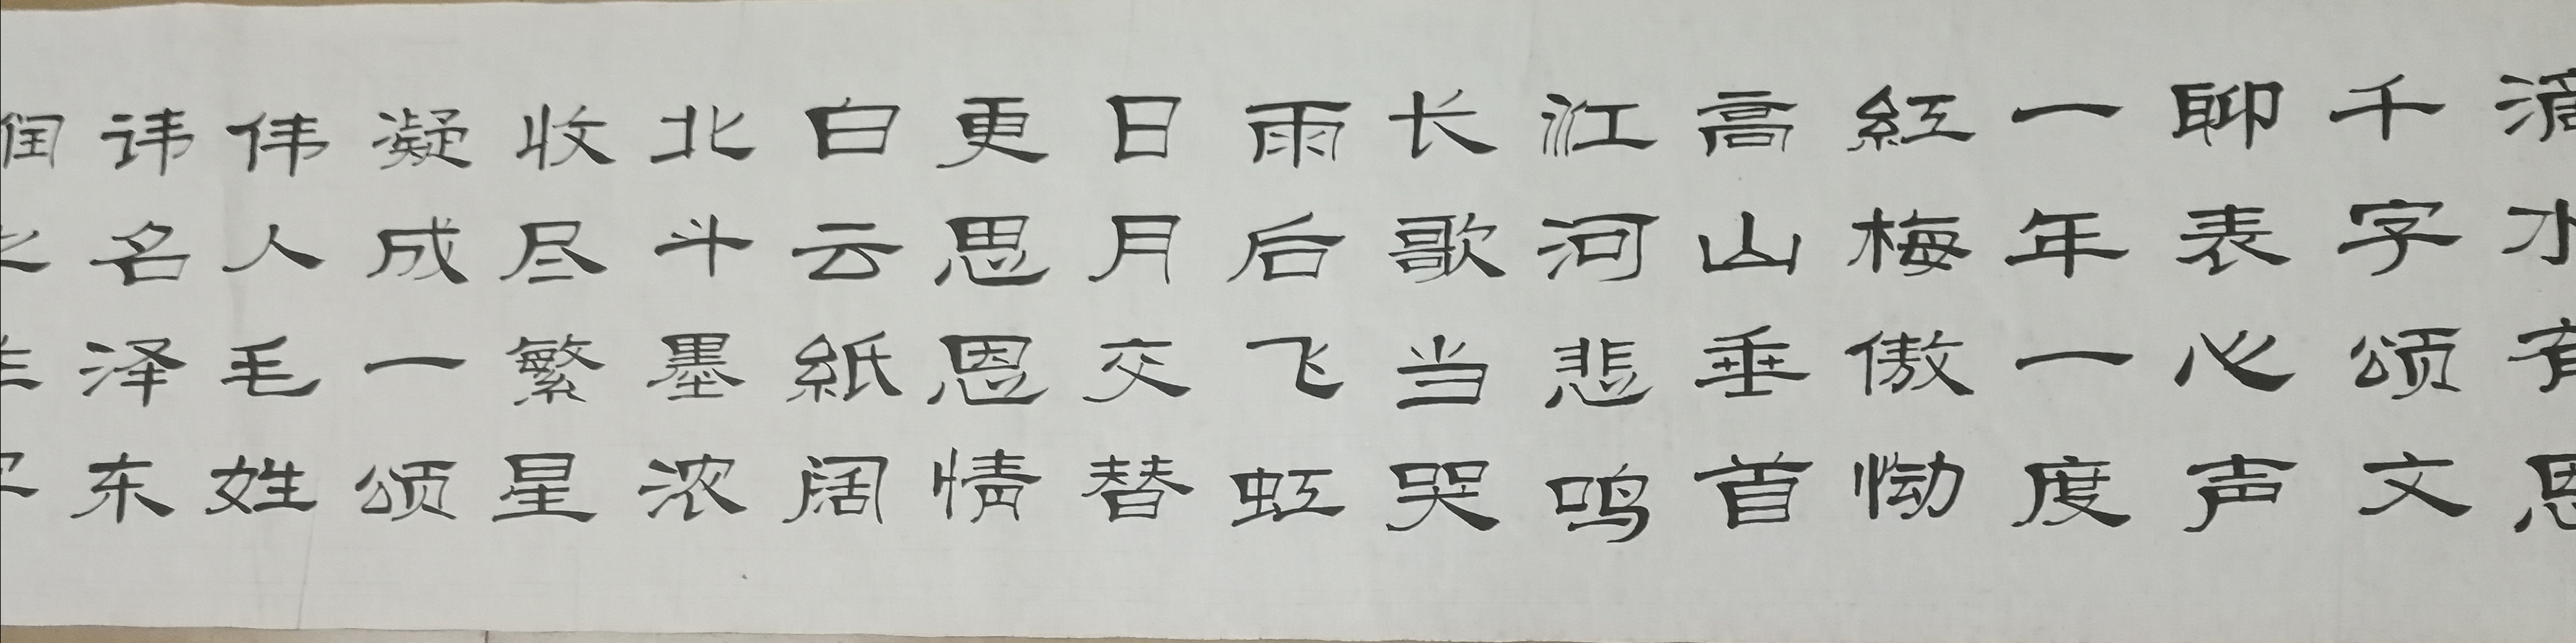 滴水有恩
千字颂文
聊表心声
一年一度
紅梅傲恸
高山垂首
江河悲鸣
长歌当哭
雨后飞虹
日月交替
更思恩情
白云紙阔
北斗墨浓
收尽繁星
凝成一颂
伟人毛姓
讳名泽东
润之